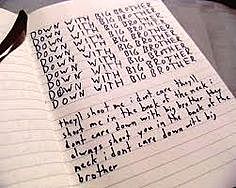 DOWN WITH BIG BROTHER
DOWN WITH BIG BROTHER
DOWN WITH BIG BROTHER
DOWN WITH BIG BROTHER
DOWN WITH BIG BROTHER
DOWN WITH BIG BROTHER
DOWN WITH BIG BROTHER
DOWN WITH BIG BROTHER
theyll shoot me i dont care theyll
shoot me in the back of the neck i
dont care down with big brother they
always shoot you in the back of the
neck i dont care down with big
brother